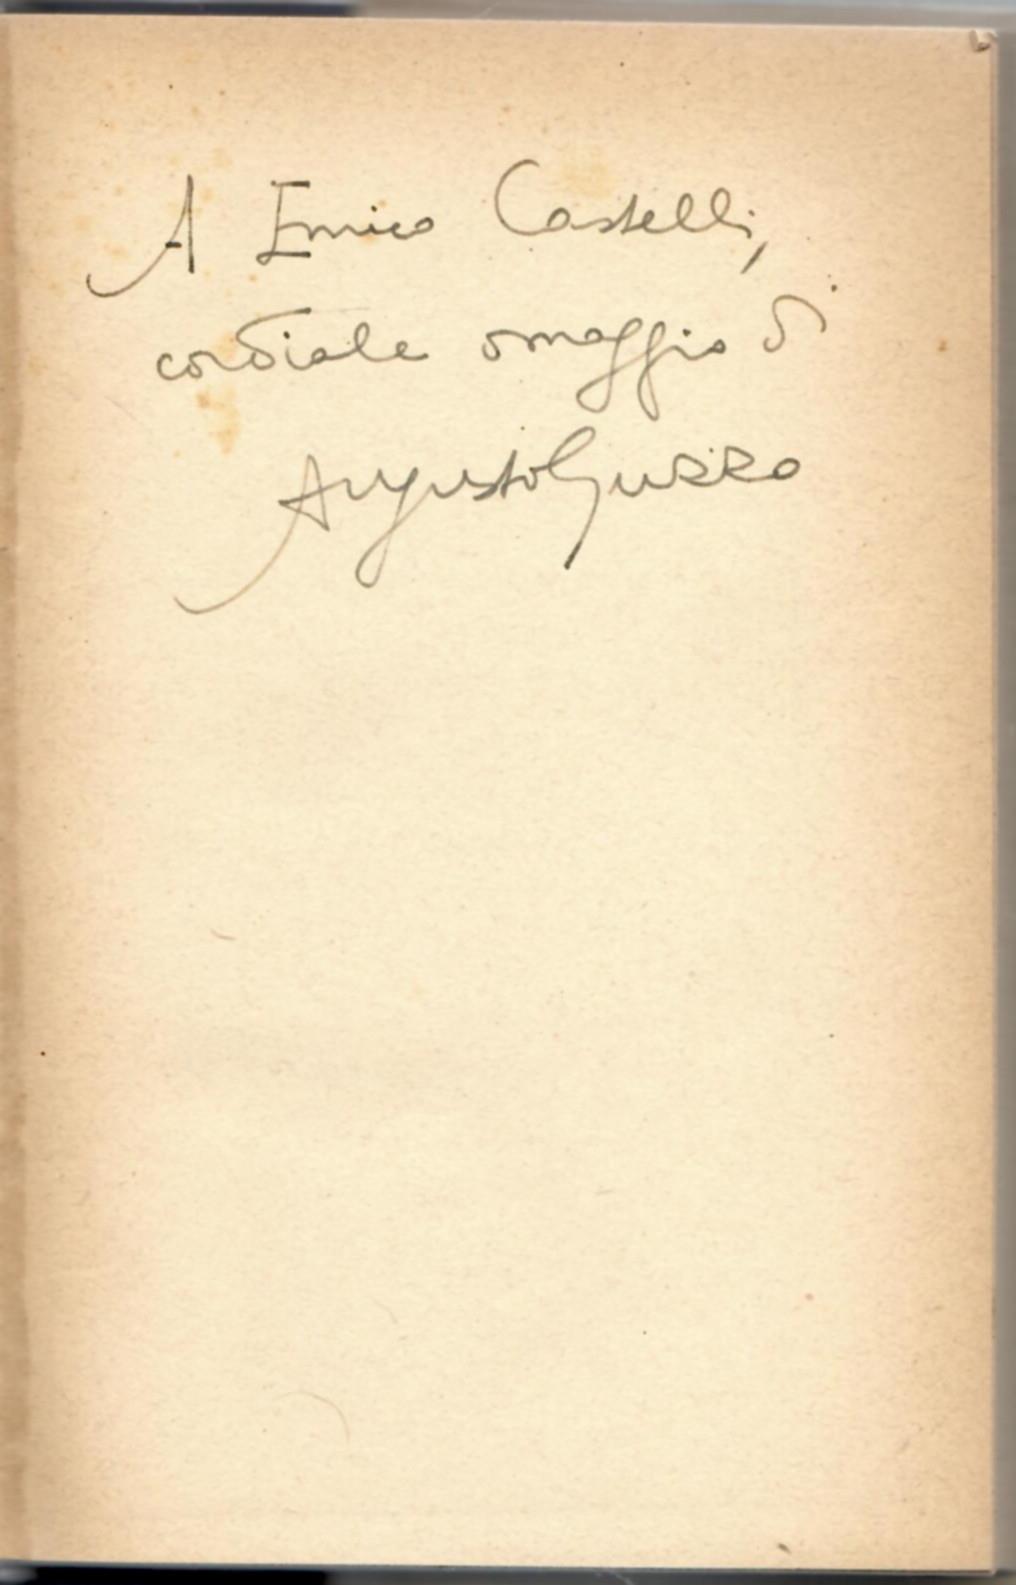 A Enrico Castelli,
cordiale omaggio di
Augusto Guzzo